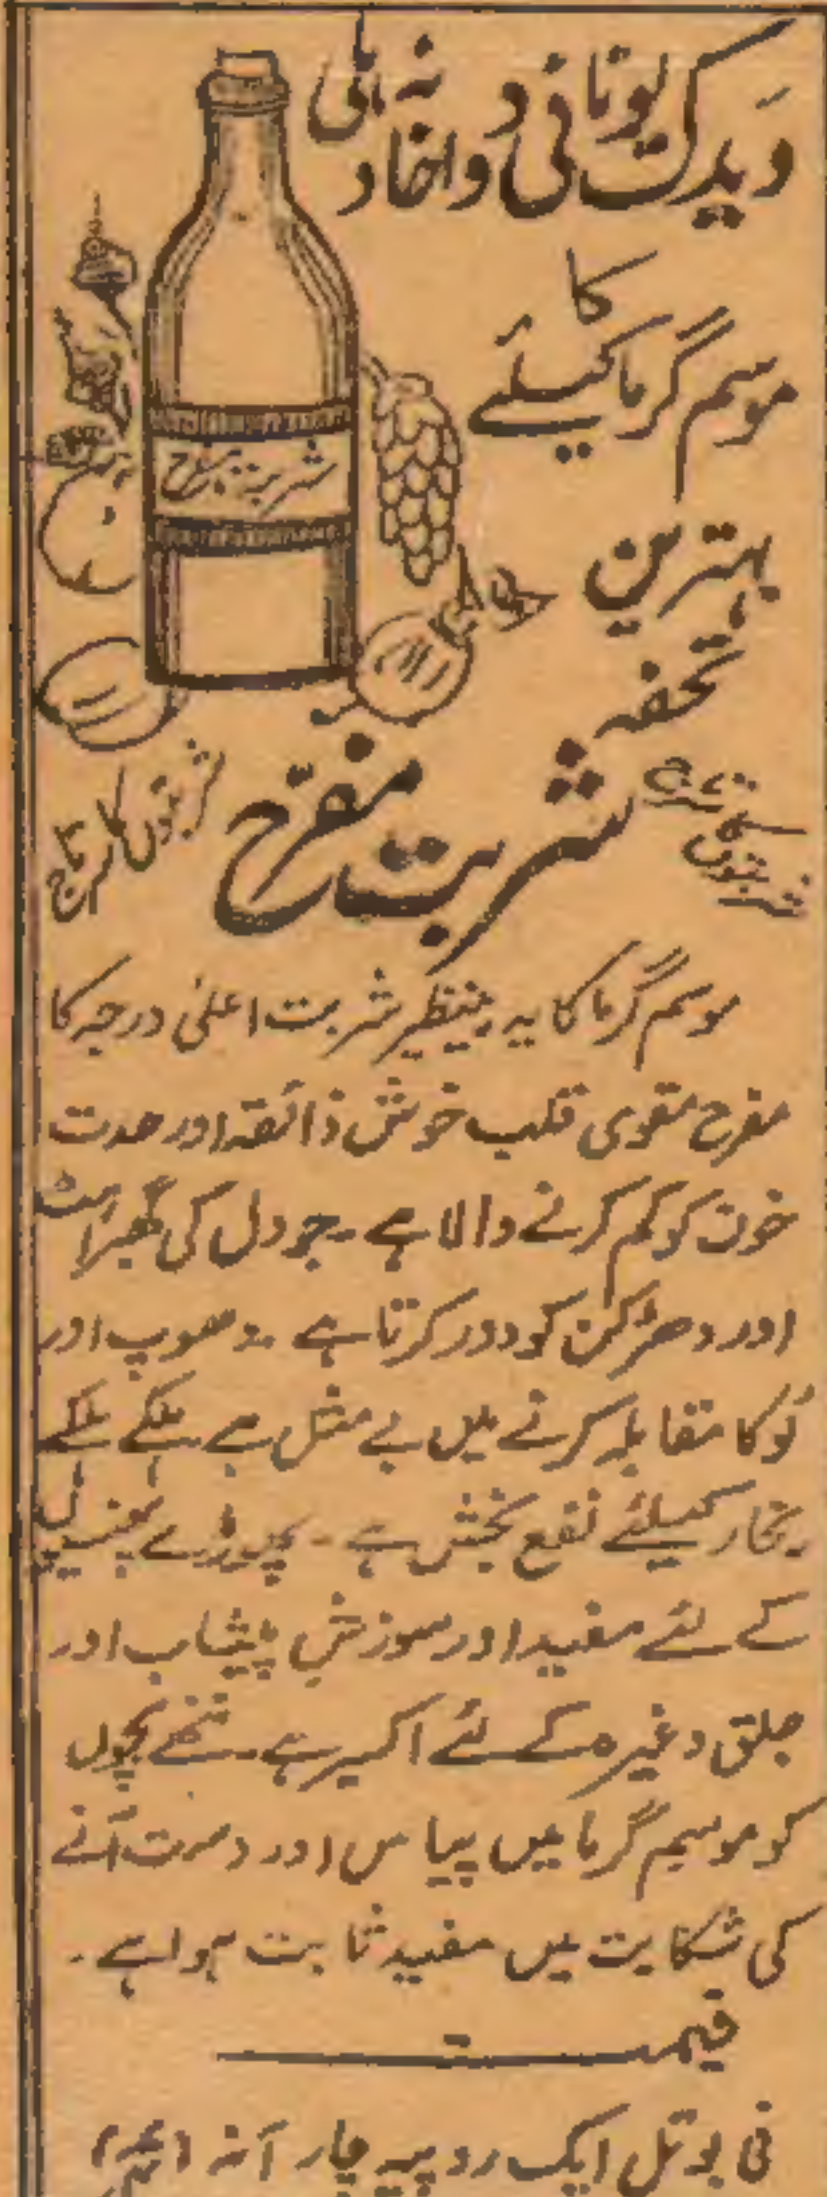 ویدک یونانی دواخانہ دہلی
کا
موسم گرما کیلئے
بہترین
تحفہ
شربت مفرح
شربتوں کا سرتاج
شربت مفرّح
شربتوں کا سرتاج
موسم گرما کا یہ بینظیر شربت اعلیٰ درجہ کا
مفرح مقوی قلب خوش ذائقہ اور حدت
خون کو کم کرنے والا ہے۔ جو دل کی گھبراہٹ
اور دھڑکن کو دور کرتا ہے۔ دھوپ اور
لُو کا مقابلہ کرنے میں بے مثل ہے ہلکے ہلکے
بخار کیلئے نفع بخش ہے۔ پھوڑے پھنسیوں
کے لئے مفید اور سوزش پیشاب اور
جلق وغیرہ کے لئے اکسیر ہے۔ ننھے بچوں
کو موسم گرما میں پیاس اور دست آنے
کی شکایت میں مفید ثابت ہوا ہے۔
قیمت
فی بوتل ایک روپیہ چار آنہ